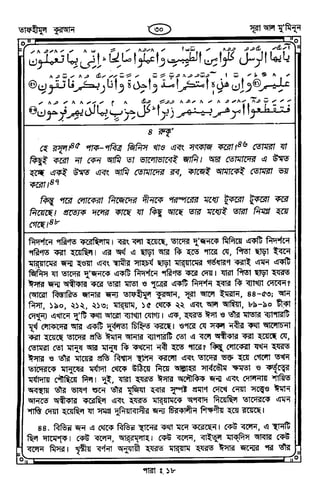 তাফহীমুল কুরআন ৩০ সূরা আল মু'মিনুন
يٰٓاَيُّهَا الرُّسُلُ كُلُوْا مِنَ الطَّيِّبٰتِ وَاعْمَلُوْا صَالِحًا ۖ اِنِّيْ بِمَا تَعْمَلُوْنَ
عَلِيْمٌ ﴿٥١﴾ وَاِنَّ هٰذِهٖٓ اُمَّتُكُمْ اُمَّةً وَّاحِدَةً وَّاَنَا رَبُّكُمْ فَاتَّقُوْنِ ﴿٥٢﴾
فَتَقَطَّعُوْٓا اَمْرَهُمْ بَيْنَهُمْ زُبُرًا ۖ كُلُّ حِزْبٍ بِمَا لَدَيْهِمْ فَرِحُوْنَ ﴿٥٣﴾
৪ রুকূ'
হে রসূল!৪৫ পাক-পবিত্র জিনিস খাও এবং সৎকাজ করো।৪৬ তোমরা যা
কিছুই করো না কেন আমি তা ভালোভাবেই জানি। আর তোমাদের এ উম্মত
হচ্ছে একই উম্মত এবং আমি তোমাদের রব, কাজেই আমাকেই তোমরা ভয়
করো।৪৭
কিন্তু পরে লোকেরা নিজেদের দীনকে পরস্পরের মধ্যে টুকরো টুকরো করে
নিয়েছে। প্রত্যেক দলের কাছে যা কিছু আছে তার মধ্যেই তারা নিমগ্ন হয়ে
গেছে।৪৮
নিদর্শনে পরিণত করেছিলাম। বরং বলা হয়েছে, তাদের দু'জনকে মিলিয়ে একটি নিদর্শনে
পরিণত করা হয়েছিল। এর অর্থ এ ছাড়া আর কি হতে পারে যে, পিতা ছাড়া ইবনে
মারয়ামের জন্ম হওয়া এবং স্বামীর সাহচর্য ছাড়া মারয়ামের গর্ভধারণ করাই এমন একটি
জিনিস যা তাদের দু'জনকে একটি নিদর্শনে পরিণত করে দেয়। যারা পিতা ছাড়া হযরত
ঈসার জন্ম অস্বীকার করে তারা মাতা ও পুত্রের একটি নিদর্শন হবার কি ব্যাখ্যা দেবেন?
(আরো বিস্তারিত জানার জন্য তাফহীমুল কুরআন, সূরা আলে ইমরান, ৪৪-৫৩; আন
নিসা, ১৯০, ২১২, ২১৩; মারয়াম, ১৫ থেকে ২২ এবং আল আম্বিয়া, ৮৯-৯০ টীকা
দেখুন) এখানে দু'টি কথা আরো ব্যাখ্যা যোগ্য। এক, হযরত ঈসা ও তাঁর মাতার ব্যাপারটি
মূর্খ লোকদের আর একটি দুর্বলতা চিহ্নিত করছে। ওপরে যে সকল নবীর কথা আলোচনা
করা হয়েছে তাদের প্রতি ঈমান আনার ব্যাপারটি তো এ বলে অস্বীকার করা হয়েছে যে,
তোমরা তো মানুষ আর মানুষ কি কখনো নবী হতে পারে? কিন্তু লোকেরা যখন হযরত
ঈসার ও তাঁর মায়ের প্রতি বিশ্বাস স্থাপন করলো এবং তাদের ভক্ত হয়ে গেলো তখন
তাদেরকে মানুষের মর্যাদা থেকে উঠিয়ে নিয়ে আল্লাহর সার্বভৌম ক্ষমতা ও কর্তৃত্বের
মর্যাদায় পৌঁছিয়ে দিল। দুই, যারা হযরত ঈসার অলৌকিক জন্ম এবং দোলনায় শায়িত
অবস্থায় তাঁর ভাষণ শুনে তাঁর মু'জিযা হবার সুস্পষ্ট প্রমাণ দেখে নেয়া সত্ত্বেও ঈমান
আনতে অস্বীকার করেছিল এবং হযরত মারয়ামকে অপবাদ দিয়েছিল তাদেরকে এমন
শাস্তি দেয়া হয়েছিল যা সমগ্র দুনিয়াবাসীর জন্য চিরকালীন শিক্ষণীয় হয়ে রয়েছে।
৪৪. বিভিন্ন জন এ থেকে বিভিন্ন স্থানের কথা মনে করেছেন। কেউ বলেন, এ স্থানটি
ছিল দামেশ্‌ক। কেউ বলেন, আররম্‌লাহ। কেউ বলেন, বাইতুল মাক্‌দিস আবার কেউ
বলেন মিসর। খৃষ্টীয় বর্ণনা অনুযায়ী হযরত মারয়াম হযরত ঈসার জন্মের পর তাঁর
পারা ঃ ১৮